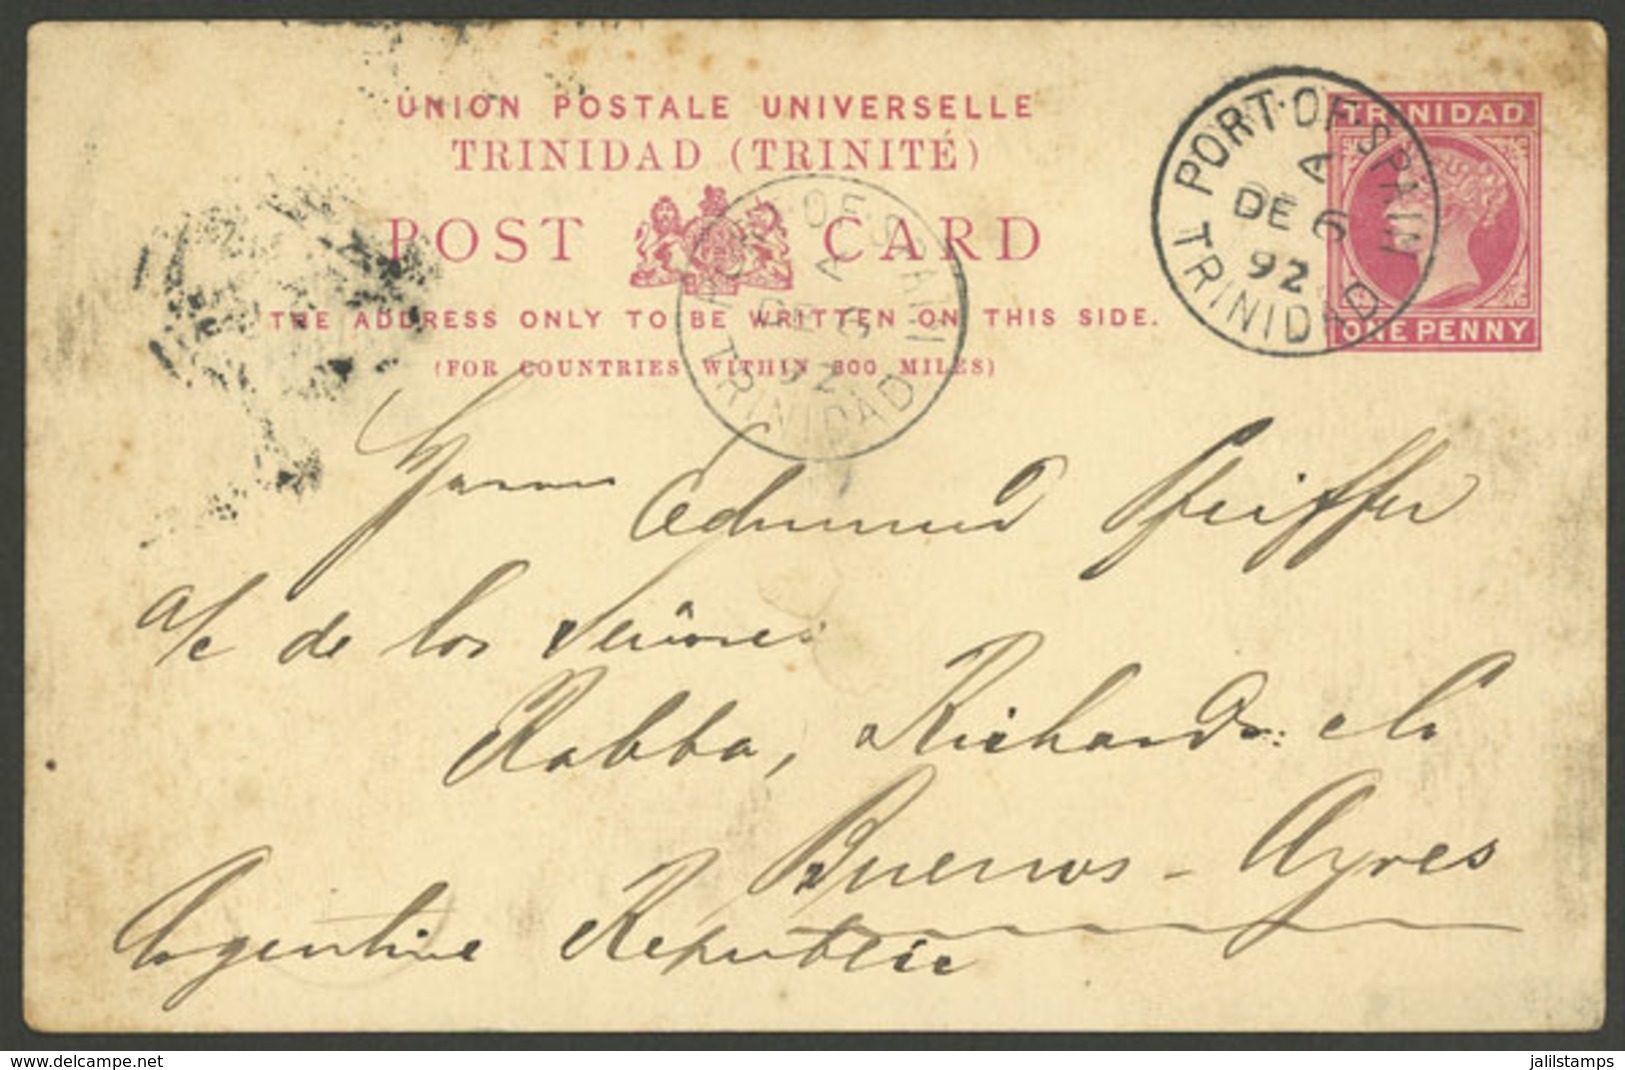 UNION POSTALE UNIVERSELLE
TRINIDAD (TRINITÉ)
POST CARD
THE ADDRESS ONLY TO BE WRITTEN ON THIS SIDE.
(FOR COUNTRIES WITHIN 300 MILES)
TRINIDAD
ONE PENNY
PORT·OF·SPAIN
A
DE 6
92
TRINIDAD
PORT·OF·SPAIN
A
DE 6
92
TRINIDAD
Herrn Edmund Pfeiffer
a/c de los Señores
Rabba, Richards: & Co
Buenos-Ayres
Argentine Republic
the-best-of-web.com
jalilstamps